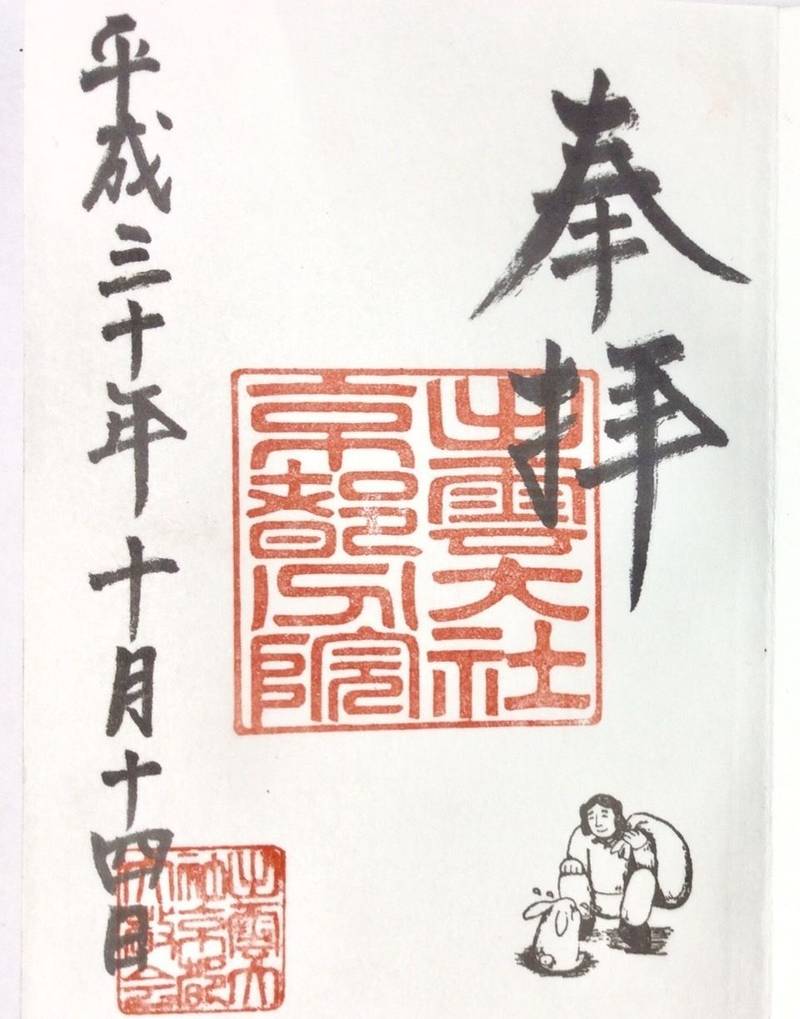 奉拝
出雲大社
京都分院
平成三十年十月十四日
出雲大
社京都